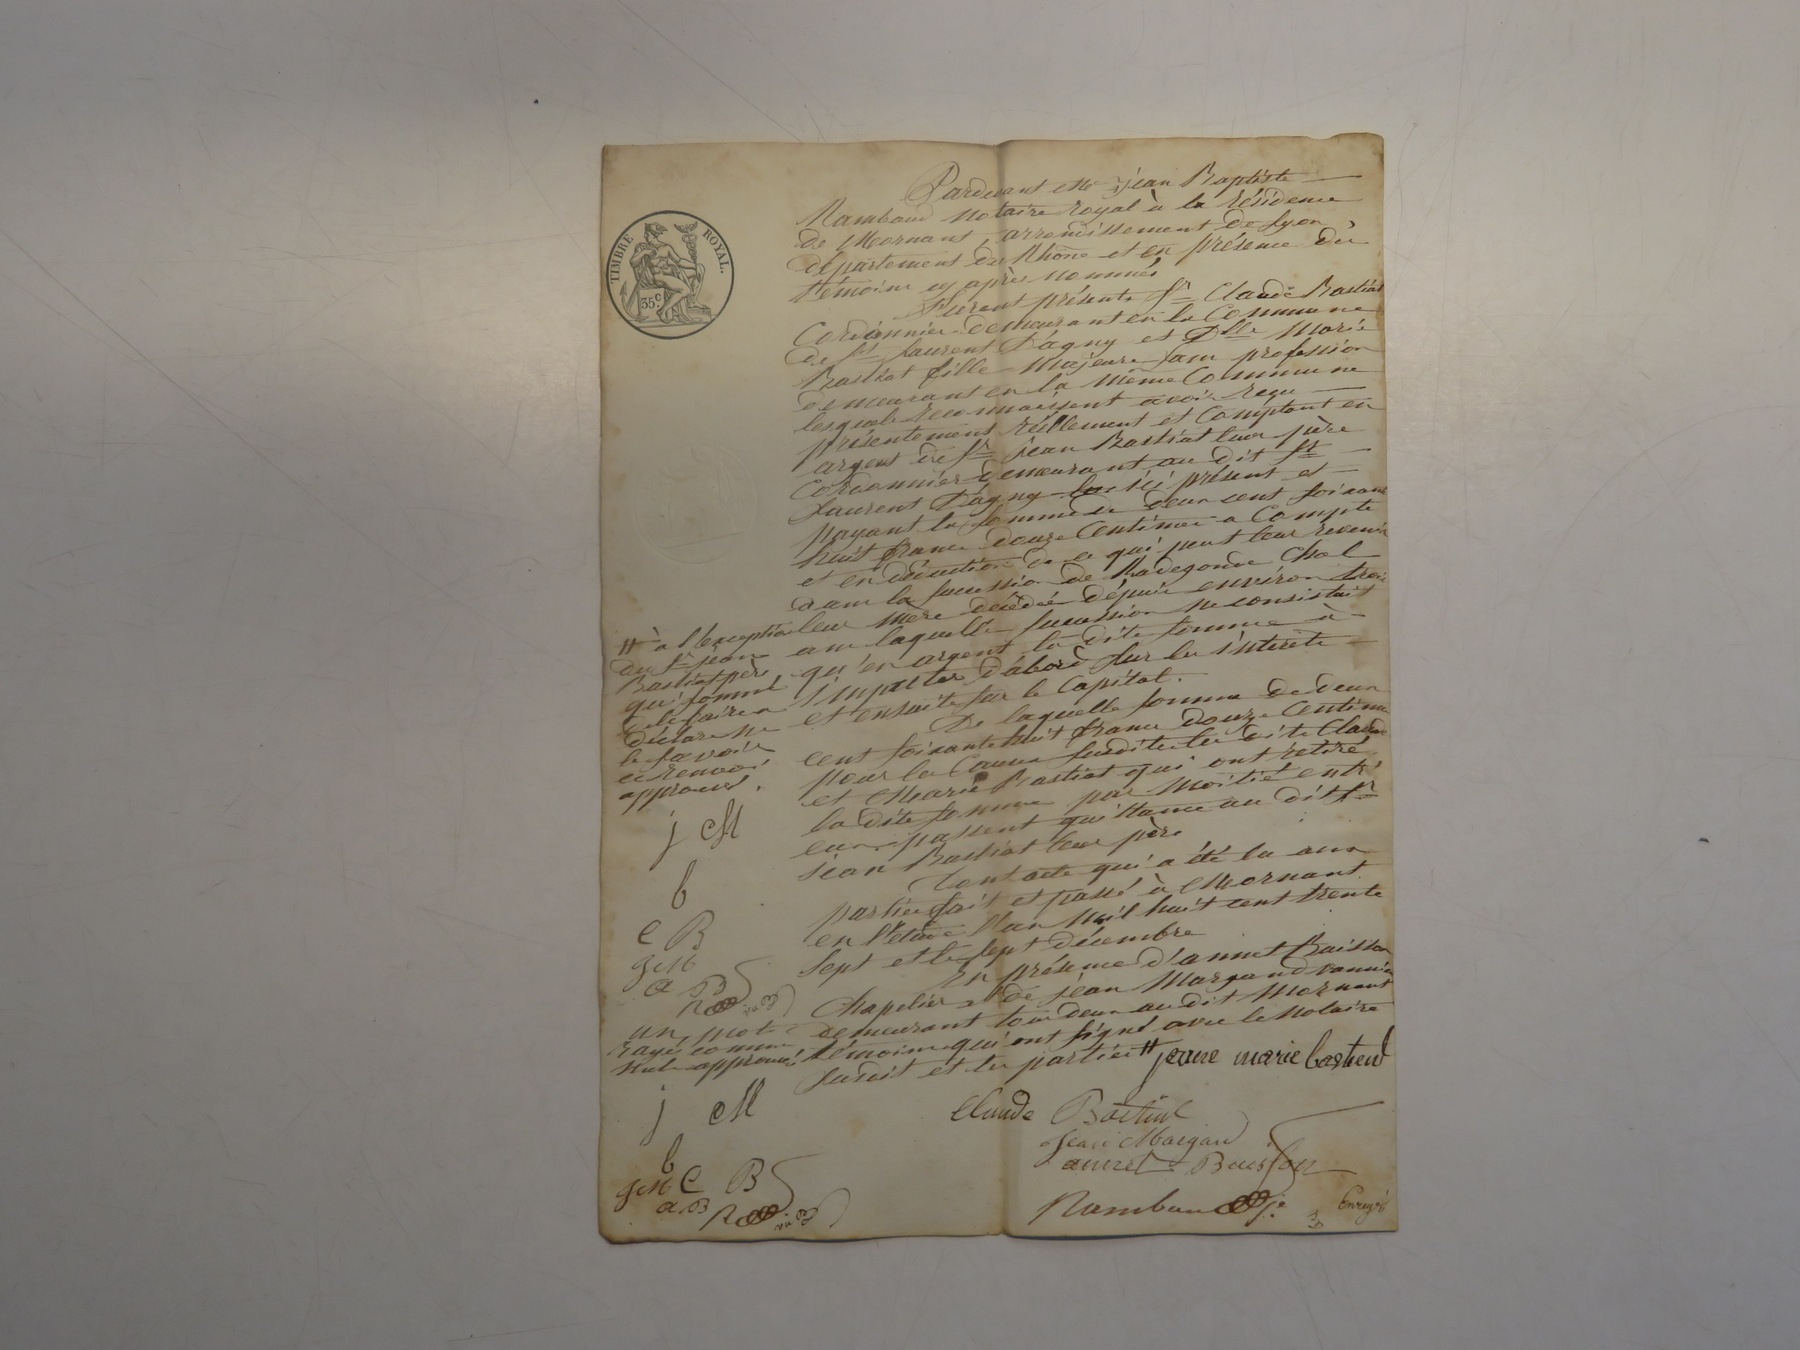 TIMBRE ROYAL.
35c.
Pardevant Me Jean Baptiste
Rambaud Notaire royal à la résidence
de Mornant, arrondissement de Lyon
département du Rhône et en présence des
témoins cy après nommés
Furent présents Sr Claude Bastiat
Cordonnier demeurant en la Commune
de St Laurent D'agny et Dlle Marie
Bastiat fille Majeure sans profession
demeurant en la même Commune
lesquels reconnaissent avoir reçu
présentement réellement et Comptant en
argent de Sr Jean Bastiat leur père
Cordonnier demeurant au dit St
Laurent D'agny ici présent et
payant la somme de deux cent soixante
huit francs douze Centimes a Compte
et en déduction de ce qui peut leur revenir
dans la succession de Radegonde Chol
leur mère décédée depuis environ trois
ans laquelle succession ne consistait
qu'en argent la dite somme à
s'imputer d'abord sur les intérêts
et ensuite sur le Capital.
De laquelle somme de deux
cent soixante huit francs douze Centimes
pour les Causes susdites les dits Claude
et Marie Bastiat qui ont retiré
la dite somme par moitié entr'
eux passent quittance au dit Sr
Jean Bastiat leur père
Dont acte qui a été lu aux
parties fait et passé à Mornant
en l'étude l'an mil huit cent trente
sept et le sept décembre
En présence d'annet Buisson
Chapelier et de Jean Margand
demeurant tous deux au dit Mornant
témoins qui ont signé avec le Notaire
susdit et les parties #
# à l'exception
du Sr Jean
Bastiat père
qui sommé
de le faire a
déclaré ne
le savoir
ce renvoi
approuvé.
j M
b
C B
JM
a B
R
un mot
rayé comme
nul approuvé
j M
b
JM C B
a.B
R
jeane marie bastient
Claude Bastiat
Jean Margand
annet Buisson
Rambaud